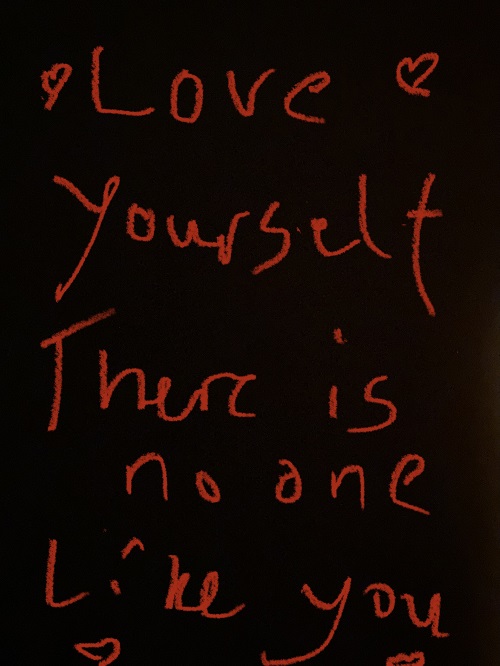 Love
yourself
There is
no one
Like you